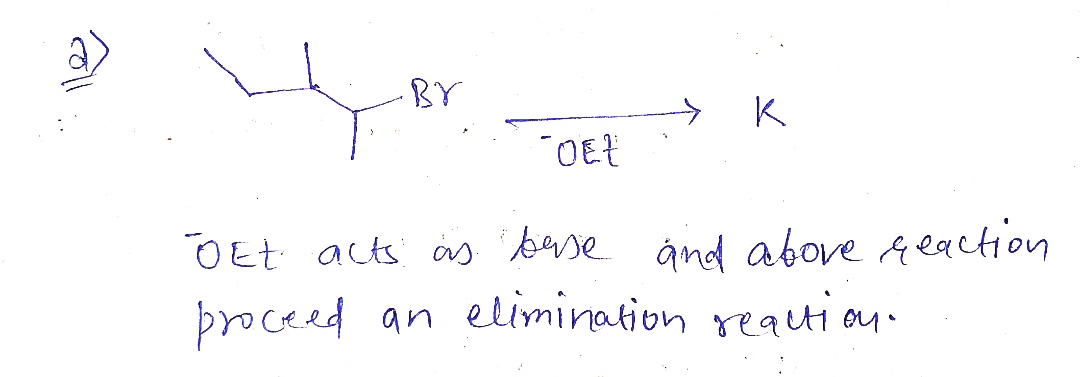 a)
Br
⁻OEt
K
⁻OEt acts as base and above reaction
proceed an elimination reaction.